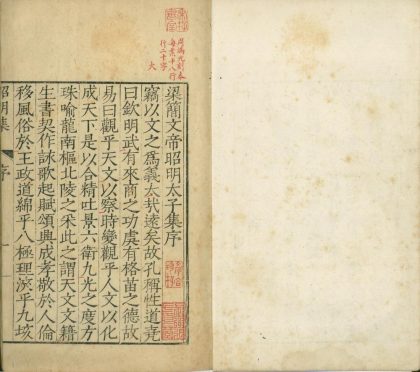 梁簡文帝昭明太子集序
竊以文之為義大哉遠矣故孔稱性道堯
曰欽明武有來商之功虞有格苗之德故
易曰觀乎天文以察時變觀乎人文以化
成天下是以含精吐景六衛九光之度方
珠喻龍南樞北陵之采此之謂天文文籍
生書契作詠歌起賦頌興成孝敬於人倫
移風俗於王政道綿乎八極理浹乎九垓
昭明集 序 一